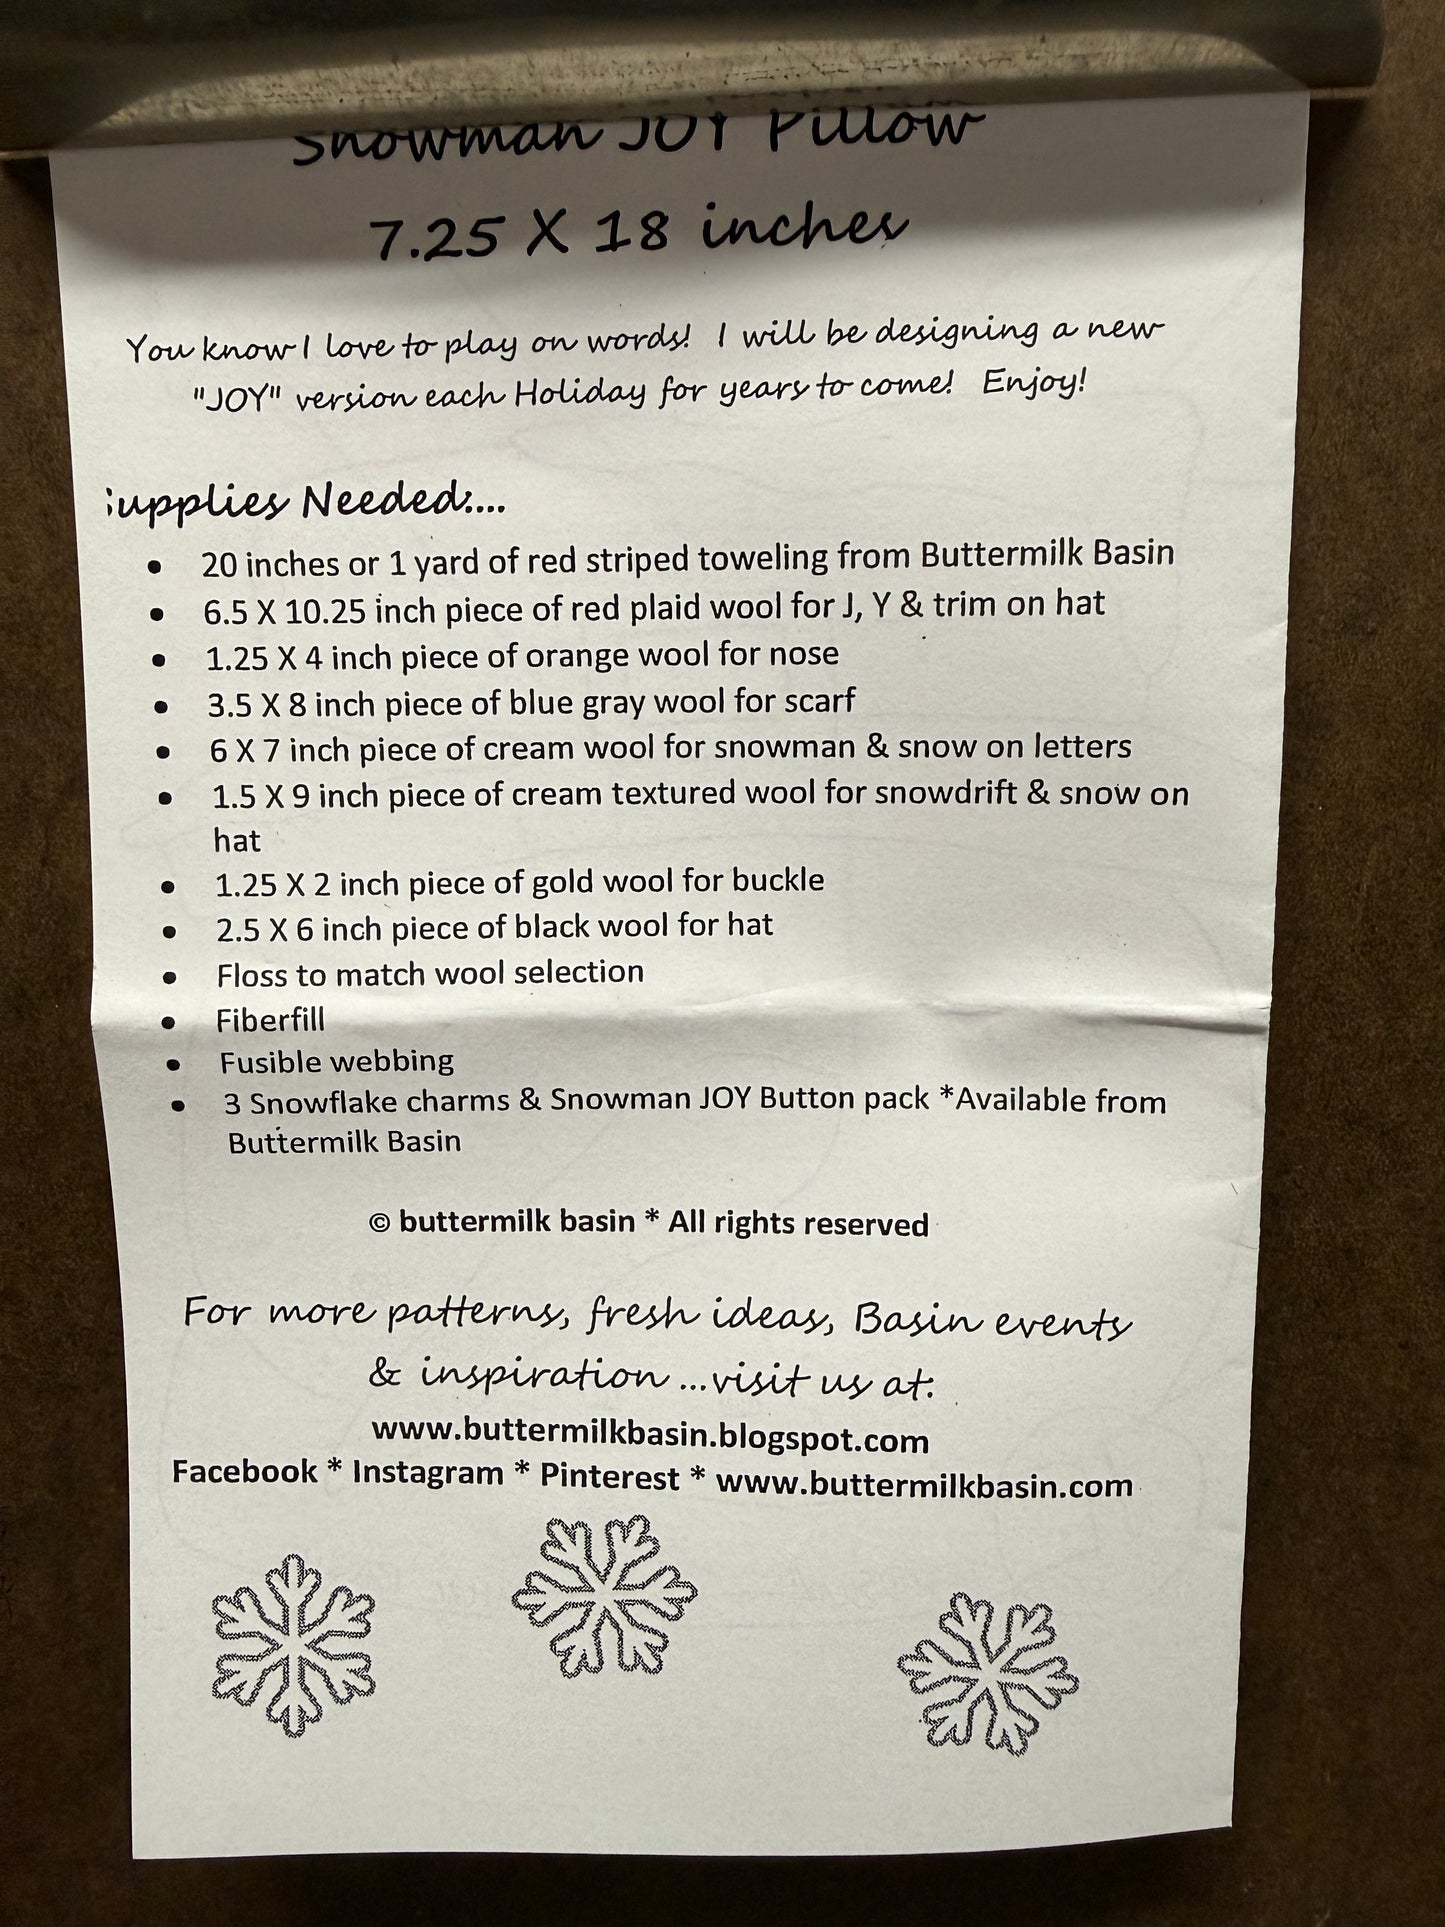 Snowman JOY Pillow
7.25 X 18 inches
You know I love to play on words!  I will be designing a new
"JOY" version each Holiday for years to come!  Enjoy!
Supplies Needed:...
• 20 inches or 1 yard of red striped toweling from Buttermilk Basin
• 6.5 X 10.25 inch piece of red plaid wool for J, Y & trim on hat
• 1.25 X 4 inch piece of orange wool for nose
• 3.5 X 8 inch piece of blue gray wool for scarf
• 6 X 7 inch piece of cream wool for snowman & snow on letters
• 1.5 X 9 inch piece of cream textured wool for snowdrift & snow on
hat
• 1.25 X 2 inch piece of gold wool for buckle
• 2.5 X 6 inch piece of black wool for hat
• Floss to match wool selection
• Fiberfill
• Fusible webbing
• 3 Snowflake charms & Snowman JOY Button pack *Available from
Buttermilk Basin
© buttermilk basin * All rights reserved
For more patterns, fresh ideas, Basin events
& inspiration ...visit us at:
www.buttermilkbasin.blogspot.com
Facebook * Instagram * Pinterest * www.buttermilkbasin.com